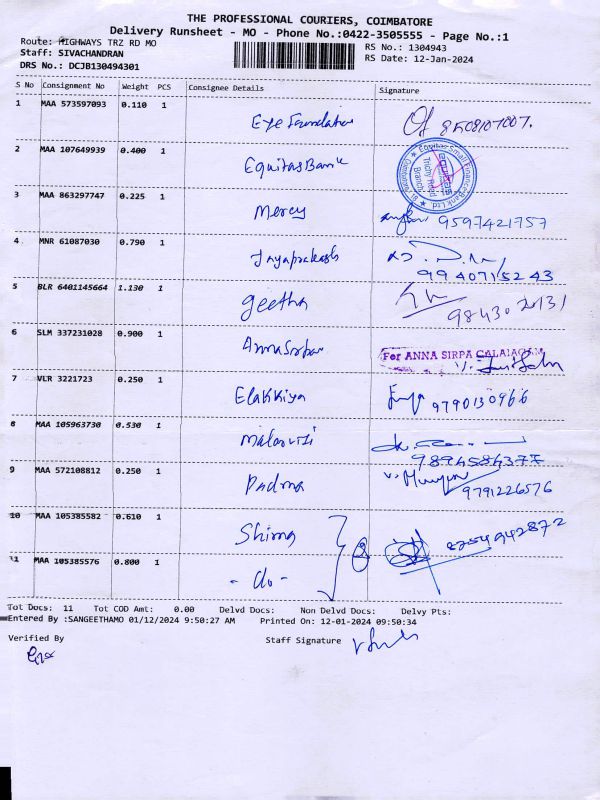 THE PROFESSIONAL COURIERS, COIMBATORE
Delivery Runsheet - MO - Phone No.:0422-3505555 - Page No.:1
Route: HIGHWAYS TRZ RD MO
RS No.: 1304943
Staff: SIVACHANDRAN
RS Date: 12-Jan-2024
DRS No.: DCJB130494301
S No Consignment No Weight PCS Consignee Details Signature
1 MAA 573597093 0.110 1 Eye Foundation 8508107007.
2 MAA 107649939 0.400 1 Equitas Bank
Equitas Small Finance Bank Ltd.
Trichy Road
Branch
3 MAA 863297747 0.225 1 Mercy 9597421757
4 MNR 61087030 0.790 1 Jayaprakash
9940715243
5 BLR 6401145664 1.130 1 geetha 98430 20131
6 SLM 337231028 0.900 1
For ANNA SIRPA CALAIAGAM
7 VLR 3221723 0.250 1 Elakkiya 9790130966
8 MAA 105963730 0.530 1
9894584377
9 MAA 572108812 0.250 1 Padma
9791226576
10 MAA 105385582 0.610 1 8754942872
11 MAA 105385576 0.800 1 - do -
Tot Docs: 11 Tot COD Amt: 0.00 Delvd Docs: Non Delvd Docs: Delvy Pts:
Entered By :SANGEETHAMO 01/12/2024 9:50:27 AM Printed On: 12-01-2024 09:50:34
Verified By Staff Signature